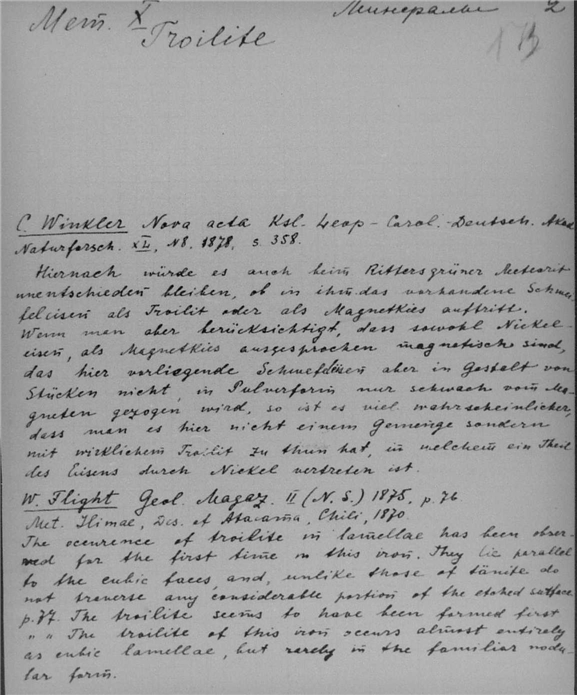 Мет. X Минералы 2
Troilite 173
C. Winkler Nova acta Ksl. Leop-Carol.-Deutsch. Akad
Naturforsch. XL, N8. 1878, s. 358.
Hiernach würde es auch beim Rittersgrüner Meteorit
unentschieden bleiben, ob in ihm das vorhandene Schwe-
feleisen als Troilit oder als Magnetkies auftritt.
Wenn man aber berücksichtigt, dass sowohl Nickel-
eisen, als Magnetkies ausgesprochen magnetisch sind,
das hier vorliegende Schwefeleisen aber in Gestalt von
Stücken nicht, in Pulverform nur schwach vom Ma-
gneten gezogen wird, so ist es viel wahrscheinlicher,
dass man es hier nicht einem Gemenge sondern
mit wirklichem Troilit zu thun hat, in welchem ein Theil
des Eisens durch Nickel vertreten ist.
W. Flight Geol. Magaz. II (N. S.) 1875, p. 76
Met. Ilimae, Des. of Atacama, Chili, 1870.
The ocurence of troilite in lamellae has been obser-
ved for the first time in this iron. They lie parallel
to the cubic faces, and, unlike those of tänite do
not traverse any considerable portion of the etched surface
p. 77. The troilite seems to have been formed first
" " The troilite of this iron occurs almost entirely
as cubic lamellae, but rarely in the familiar nodu-
lar form.